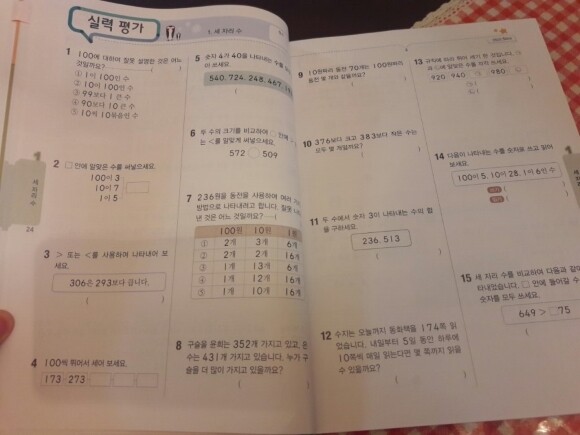 실력 평가
1. 세 자리 수
1 100에 대하여 잘못 설명한 것은 어느
것일까요?
① 1이 100인 수
② 10이 100인 수
③ 99보다 1 큰 수
④ 90보다 10 큰 수
⑤ 10씩 10묶음인 수
2 □ 안에 알맞은 수를 써넣으세요.
100이 3
10이 7
1이 5
3 > 또는 <를 사용하여 나타내어 보
세요.
306은 293보다 큽니다.
4 100씩 뛰어서 세어 보세요.
173 273
5 숫자 4가 40을 나타내는 수를
쓰세요.
540, 724, 248, 467,
6 두 수의 크기를 비교하여 ○ 안에
는 <를 알맞게 써넣으세요.
572 ○ 509
7 236원을 동전을 사용하여 여러 가지
방법으로 나타내려고 합니다. 잘못 나타
낸 것은 어느 것일까요?
100원 10원
① 2개 3개 6개
② 2개 2개 16개
③ 1개 13개 6개
④ 1개 12개 16개
⑤ 1개 10개 16개
8 구슬을 윤희는 352개 가지고 있고, 은
수는 431개 가지고 있습니다. 누가 구
슬을 더 많이 가지고 있을까요?
9 10원짜리 동전 70개는 100원짜리
동전 몇 개와 같을까요?
10 376보다 크고 383보다 작은 수는
모두 몇 개일까요?
11 두 수에서 숫자 3이 나타내는 수의 합
을 구하세요.
236, 513
12 수지는 오늘까지 동화책을 174쪽 읽
었습니다. 내일부터 5일 동안 하루에
10쪽씩 매일 읽는다면 몇 쪽까지 읽을
수 있을까요?
13 규칙에 따라 뛰어 세기 한 것입니다. ㉠
과 ㉡에 알맞은 수를 각각 쓰세요.
920 940 ㉠ 980 ㉡
14 다음이 나타내는 수를 숫자로 쓰고 읽어
보세요.
100이 5, 10이 28, 1이 6인 수
쓰기
읽기
15 세 자리 수를 비교하여 다음과 같이
타내었습니다. □ 안에 들어갈 수
숫자를 모두 쓰세요.
649 > □75
세 자리 수
24
1